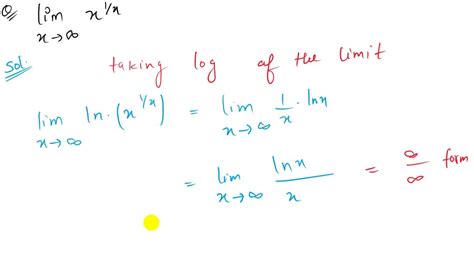 Q lim x→∞ x^{1/x}
Sol. taking log of the limit
lim x→∞ ln·(x^{1/x}) = lim x→∞ 1/x · lnx
= lim x→∞ lnx/x = ∞/∞ form